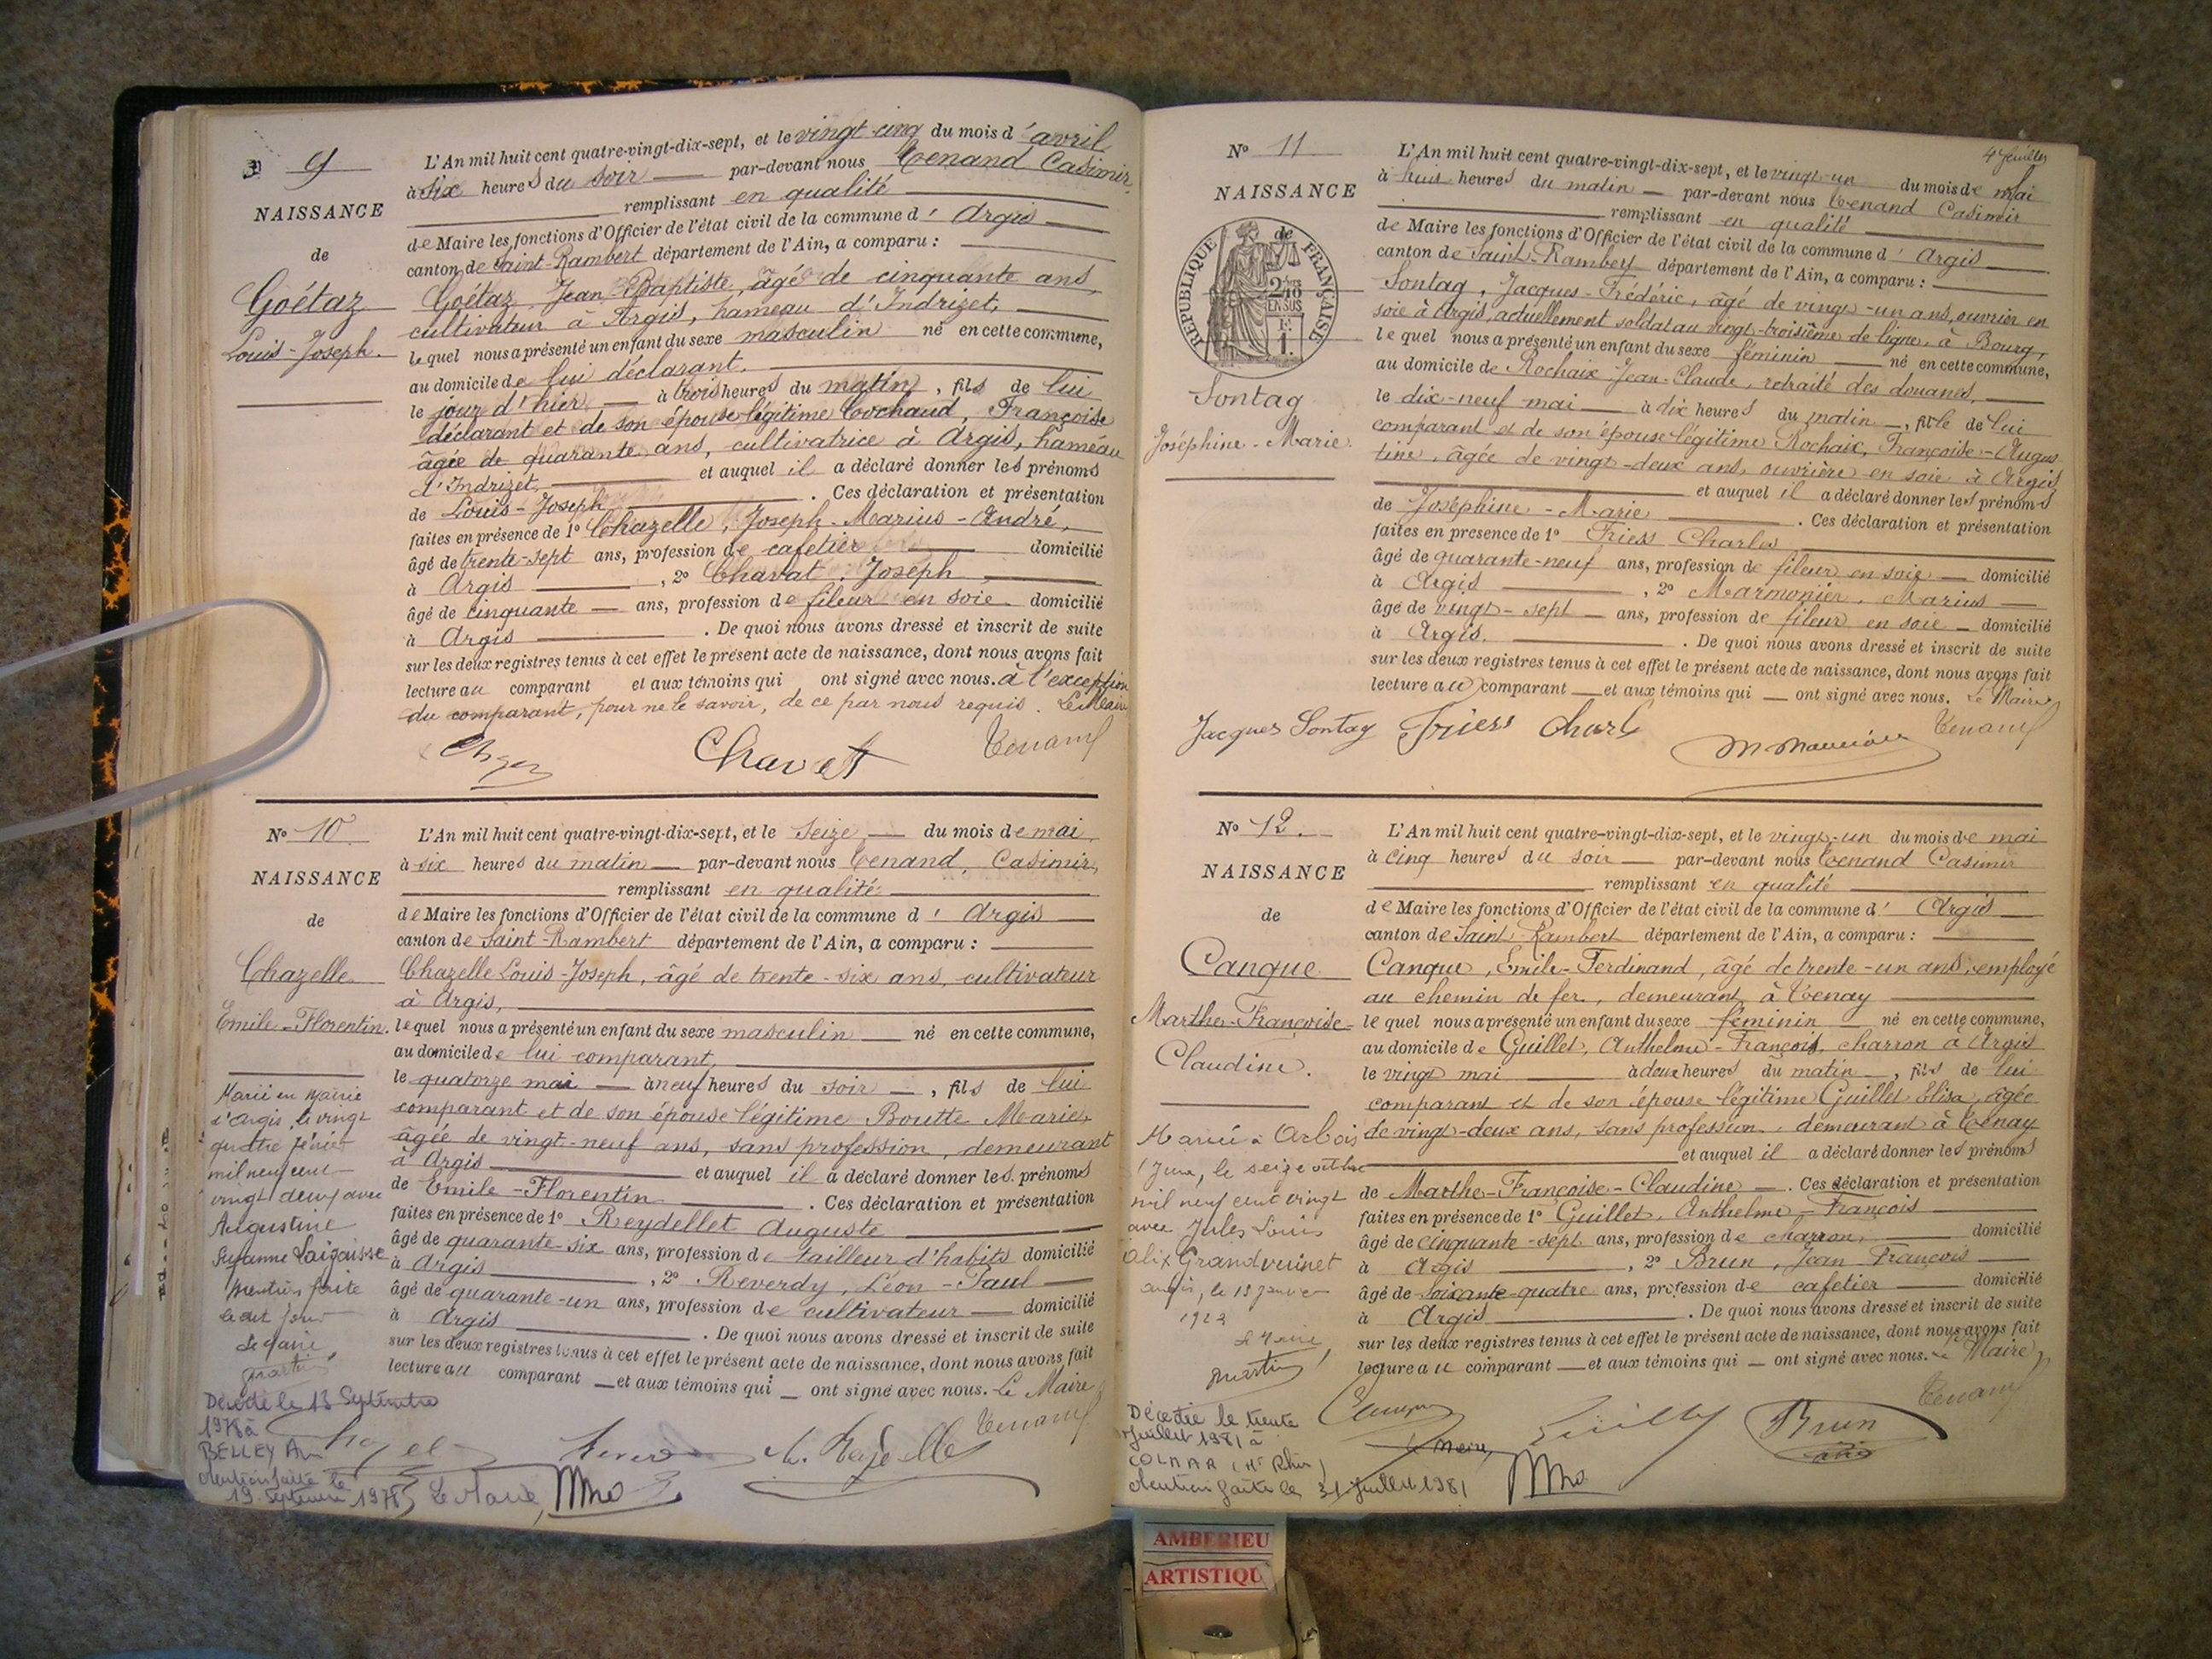 9
NAISSANCE
de
Goétaz
Louis-Joseph.
L'An mil huit cent quatre-vingt-dix-sept, et le vingt cinq du mois d'avril
à six heures du soir par-devant nous Tenand Casimir,
remplissant en qualité
de Maire les fonctions d'Officier de l'état civil de la commune d'Argis
canton de Saint-Rambert département de l'Ain, a comparu :
Goétaz Jean Baptiste, âgé de cinquante ans,
cultivateur à Argis, hameau d'Indrizet,
lequel nous a présenté un enfant du sexe masculin né en cette commune,
au domicile de lui déclarant,
le jour d'hier à trois heures du matin, fils de lui
déclarant et de son épouse légitime Cochaud, Françoise
âgée de quarante ans, cultivatrice à Argis, hameau
d'Indrizet, et auquel il a déclaré donner les prénoms
de Louis-Joseph. Ces déclaration et présentation
faites en présence de 1° Chazelle, Joseph-Marius-André,
âgé de trente-sept ans, profession de cafetier domicilié
à Argis, 2° Chavat, Joseph
âgé de cinquante ans, profession de fileur en soie domicilié
à Argis. De quoi nous avons dressé et inscrit de suite
sur les deux registres tenus à cet effet le présent acte de naissance, dont nous avons fait
lecture au comparant et aux témoins qui ont signé avec nous. à l'exception
du comparant, pour ne le savoir, de ce par nous requis. Le Maire
Chavat Tenand
N° 10
NAISSANCE
de
Chazelle
Emile-Florentin.
L'An mil huit cent quatre-vingt-dix-sept, et le seize du mois de mai
à six heures du matin par-devant nous Tenand, Casimir,
remplissant en qualité
de Maire les fonctions d'Officier de l'état civil de la commune d'Argis
canton de Saint-Rambert département de l'Ain, a comparu :
Chazelle Louis-Joseph, âgé de trente-six ans, cultivateur
à Argis,
lequel nous a présenté un enfant du sexe masculin né en cette commune,
au domicile de lui comparant,
le quatorze mai à neuf heures du soir, fils de lui
comparant et de son épouse légitime Boutte Marie,
âgée de vingt-neuf ans, sans profession, demeurant
à Argis et auquel il a déclaré donner les prénoms
de Emile-Florentin. Ces déclaration et présentation
faites en présence de 1° Reydellet Auguste
âgé de quarante-six ans, profession de tailleur d'habits domicilié
à Argis, 2° Reverdy, Léon-Paul
âgé de quarante-un ans, profession de cultivateur domicilié
à Argis. De quoi nous avons dressé et inscrit de suite
sur les deux registres tenus à cet effet le présent acte de naissance, dont nous avons fait
lecture au comparant et aux témoins qui ont signé avec nous. Le Maire
Tenand
Marié en Mairie
d'Argis le vingt
quatre février
mil neuf cent
vingt deux avec
Augustine
Suzanne Laigaisse
mention faite
le dit jour
Le Maire,
Martin
Décédé le 13 Septembre
1978 à
BELLEY Ain
Mention faite le
19 Septembre 1978
Le Maire,
4 feuilles
N° 11
NAISSANCE
de
REPUBLIQUE FRANÇAISE
2/10
EN SUS
Sontag
Joséphine-Marie.
L'An mil huit cent quatre-vingt-dix-sept, et le vingt-un du mois de mai
à huit heures du matin par-devant nous Tenand Casimir
remplissant en qualité
de Maire les fonctions d'Officier de l'état civil de la commune d'Argis
canton de Saint-Rambert département de l'Ain, a comparu :
Sontag, Jacques-Frédéric, âgé de vingt-un ans, ouvrier en
soie à Argis, actuellement soldat au vingt-troisième de ligne, à Bourg,
lequel nous a présenté un enfant du sexe féminin né en cette commune,
au domicile de Rochaix Jean-Claude, retraité des douanes,
le dix-neuf mai à dix heures du matin, fille de lui
comparant et de son épouse légitime Rochaix, Françoise-Augus
tine, âgée de vingt-deux ans, ouvrière en soie à Argis
et auquel il a déclaré donner les prénoms
de Joséphine-Marie. Ces déclaration et présentation
faites en présence de 1° Friess Charles
âgé de quarante-neuf ans, profession de fileur en soie domicilié
à Argis, 2° Marmonier, Marius
âgé de vingt-sept ans, profession de fileur en soie domicilié
à Argis. De quoi nous avons dressé et inscrit de suite
sur les deux registres tenus à cet effet le présent acte de naissance, dont nous avons fait
lecture au comparant et aux témoins qui ont signé avec nous. Le Maire
Jacques Sontag Friess Charl Tenand
N° 12.
NAISSANCE
de
Canque
Marthe-Françoise-
Claudine.
L'An mil huit cent quatre-vingt-dix-sept, et le vingt-un du mois de mai
à cinq heures du soir par-devant nous Tenand Casimir
remplissant en qualité
de Maire les fonctions d'Officier de l'état civil de la commune d'Argis
canton de Saint-Rambert département de l'Ain, a comparu :
Canque, Emile-Ferdinand, âgé de trente-un ans, employé
au chemin de fer, demeurant à Tenay
lequel nous a présenté un enfant du sexe féminin né en cette commune,
au domicile de Guillet, Anthelme-François, charron à Argis
le vingt mai à deux heures du matin, fils de lui
comparant et de son épouse légitime Guillet Elisa, âgée
de vingt-deux ans, sans profession, demeurant à Tenay
et auquel il a déclaré donner les prénoms
de Marthe-Françoise-Claudine. Ces déclaration et présentation
faites en présence de 1° Guillet, Anthelme-François
âgé de cinquante-sept ans, profession de charron, domicilié
à Argis, 2° Brun, Jean François
âgé de soixante-quatre ans, profession de cafetier domicilié
à Argis. De quoi nous avons dressé et inscrit de suite
sur les deux registres tenus à cet effet le présent acte de naissance, dont nous avons fait
lecture au comparant et aux témoins qui ont signé avec nous. Le Maire
Tenand
Brun
Mariée à Arbois
Jura, le seize octobre
mil neuf cent vingt
avec Jules Louis
Alix Grandvuinet
Argis, le 18 janvier
1922
Le Maire,
Martin
Décédée le trente
juillet 1981 à
COLMAR (Ht Rhin)
Mention faite le 31 juillet 1981
Le Maire,
AMBERIEU
ARTISTIQU